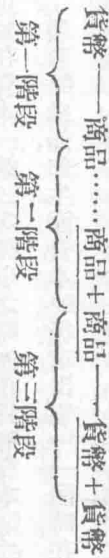 貨幣——商品……商品+商品——貨幣+貨幣
第一階段 第二階段 第三階段